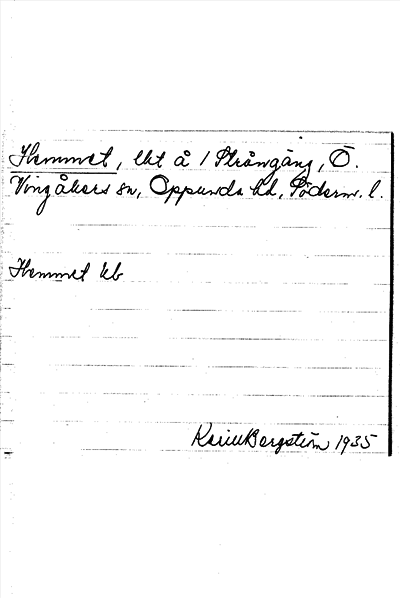 Hemmet, lht å 1 Strångäng, Ö.
Vingåkers sn, Oppunda hd, Söderm. l.
Hemmet kb
Karin Bergström 1935